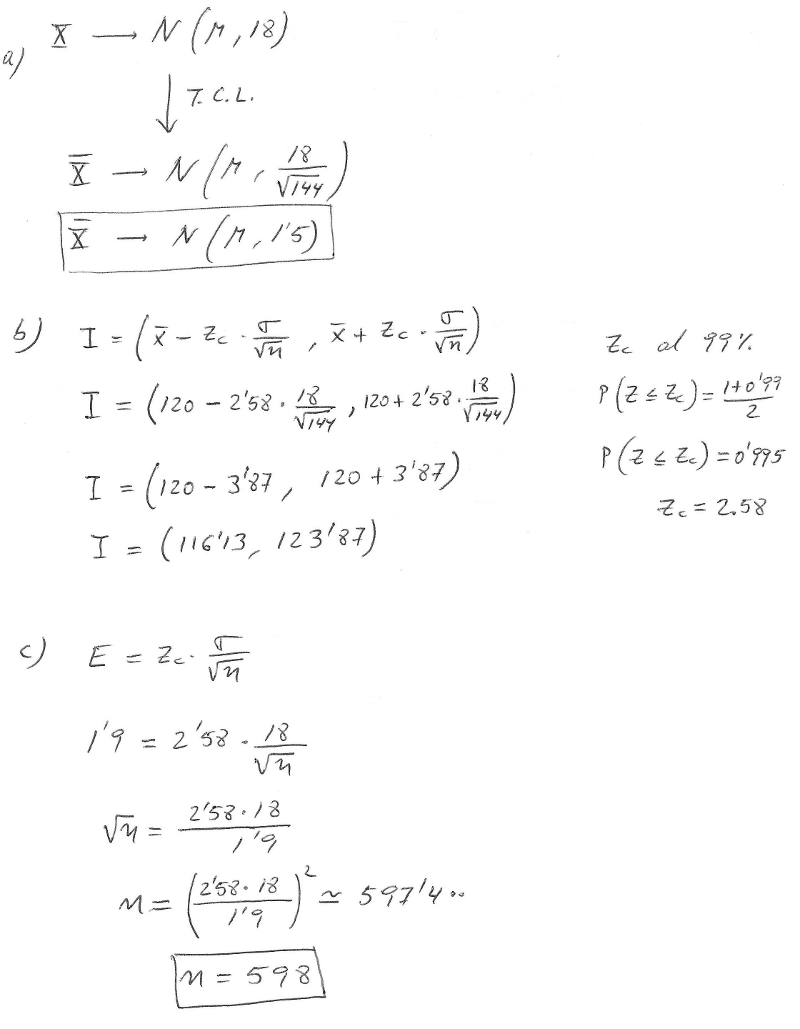 a) X → N(μ, 18)
↓ T.C.L.
X̄ → N(μ, 18/√144)
X̄ → N(μ, 1'5)
b) I = (x̄ - Zc · σ/√n , x̄ + Zc · σ/√n)
I = (120 - 2'58 · 18/√144 , 120 + 2'58 · 18/√144)
I = (120 - 3'87 , 120 + 3'87)
I = (116'13, 123'87)
Zc al 99%
P(Z ≤ Zc) = 1+0'99/2
P(Z ≤ Zc) = 0'995
Zc = 2.58
c) E = Zc · σ/√n
1'9 = 2'58 · 18/√n
√n = 2'58 · 18/1'9
n = (2'58 · 18/1'9)² ≃ 597'4..
n = 598